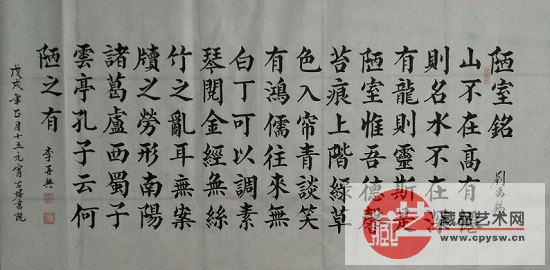 陋室銘
劉禹錫
山不在高有
則名水不在深
有龍則靈斯是
陋室惟吾德馨
苔痕上階綠草
色入帘青談笑
有鴻儒往來無
白丁可以調素
琴閱金經無絲
竹之亂耳無案
牘之勞形南陽
諸葛廬西蜀子
雲亭孔子云何
陋之有
戊戌年正月十五元宵
藏品艺术网
www.cpysw.cn